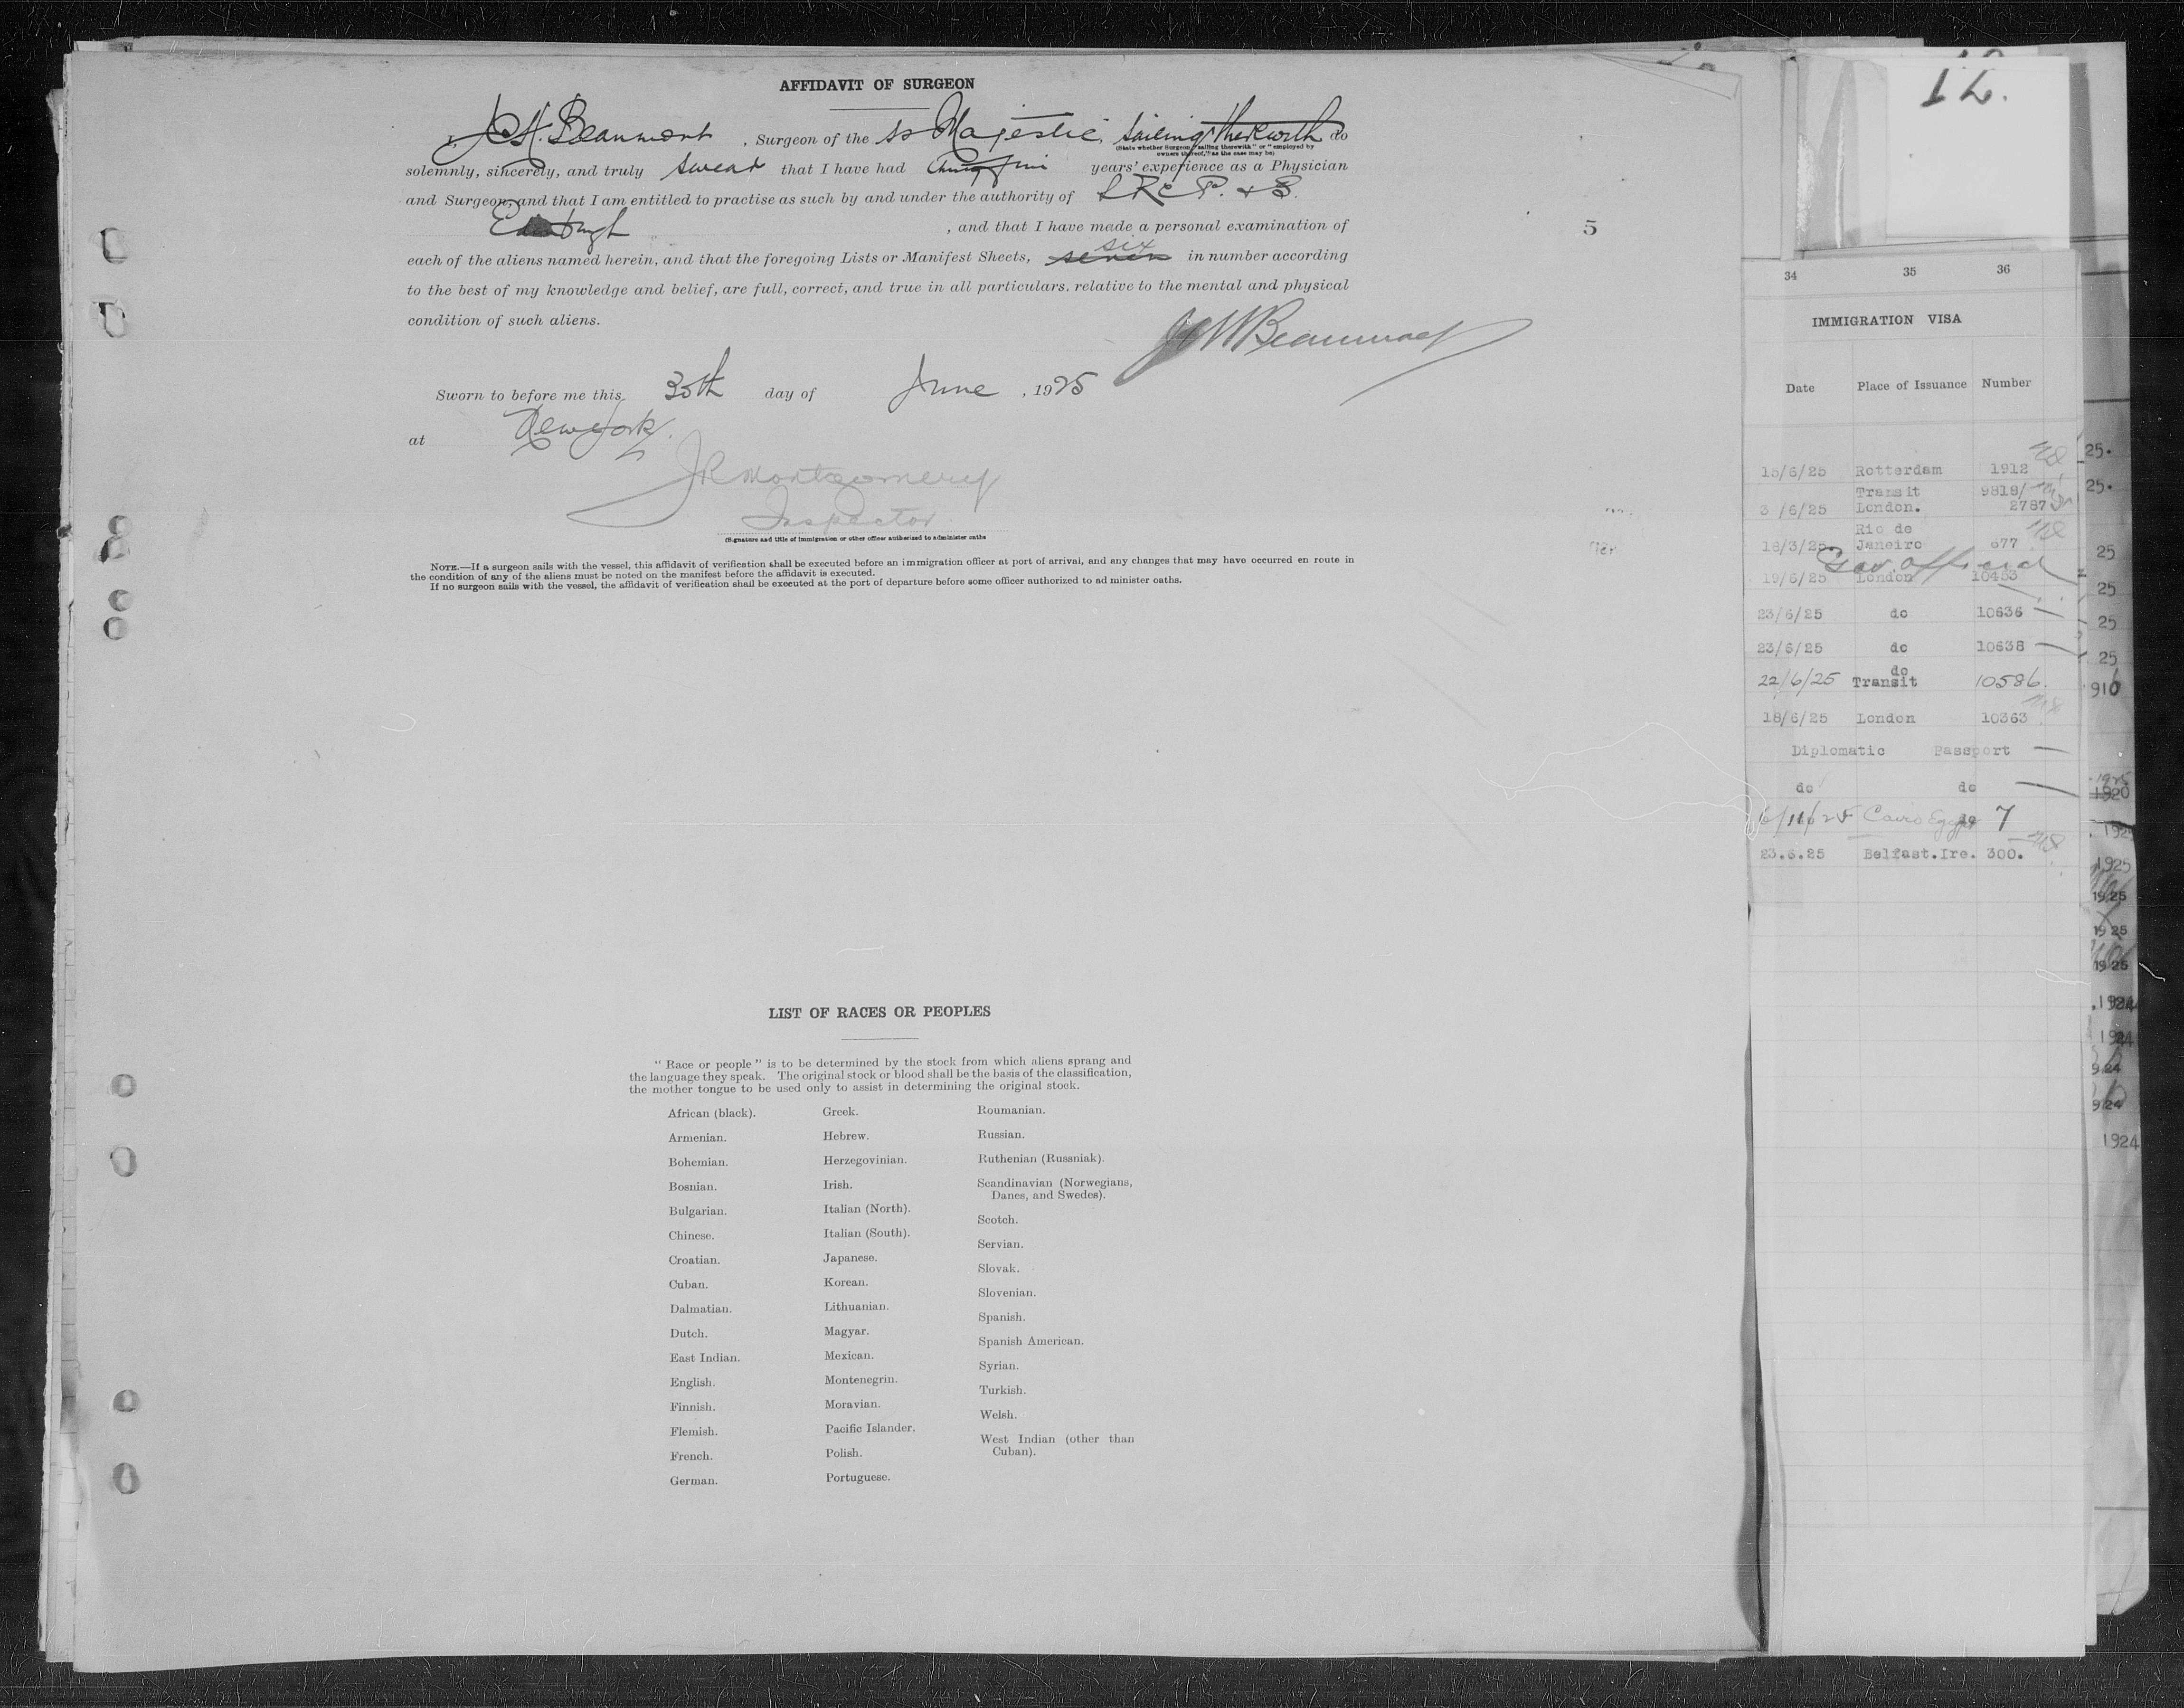 12.
AFFIDAVIT OF SURGEON
Beaumont, Surgeon of the SS Majestic, sailing therewith do
(State whether Surgeon "sailing therewith" or "employed by
owners thereof," as the case may be)
solemnly, sincerely, and truly swear that I have had years' experience as a Physician
and Surgeon, and that I am entitled to practise as such by and under the authority of L R C P. & S.
Edinburgh, and that I have made a personal examination of
5
each of the aliens named herein, and that the foregoing Lists or Manifest Sheets, seven six in number according
to the best of my knowledge and belief, are full, correct, and true in all particulars. relative to the mental and physical
condition of such aliens.
Beaumont
Sworn to before me this 30th day of June, 1925
at New York.
J R Montgomery
Inspector
(Signature and title of immigration or other officer authorized to administer oaths
NOTE.—If a surgeon sails with the vessel, this affidavit of verification shall be executed before an immigration officer at port of arrival, and any changes that may have occurred en route in
the condition of any of the aliens must be noted on the manifest before the affidavit is executed.
If no surgeon sails with the vessel, the affidavit of verification shall be executed at the port of departure before some officer authorized to ad minister oaths.
LIST OF RACES OR PEOPLES
"Race or people" is to be determined by the stock from which aliens sprang and
the language they speak. The original stock or blood shall be the basis of the classification,
the mother tongue to be used only to assist in determining the original stock.
African (black).
Armenian.
Bohemian.
Bosnian.
Bulgarian.
Chinese.
Croatian.
Cuban.
Dalmatian.
Dutch.
East Indian.
English.
Finnish.
Flemish.
French.
German.
Greek.
Hebrew.
Herzegovinian.
Irish.
Italian (North).
Italian (South).
Japanese.
Korean.
Lithuanian.
Magyar.
Mexican.
Montenegrin.
Moravian.
Pacific Islander.
Polish.
Portuguese.
Roumanian.
Russian.
Ruthenian (Russniak).
Scandinavian (Norwegians,
Danes, and Swedes).
Scotch.
Servian.
Slovak.
Slovenian.
Spanish.
Spanish American.
Syrian.
Turkish.
Welsh.
West Indian (other than
Cuban).
34 35 36
IMMIGRATION VISA
Date Place of Issuance Number
15/6/25 Rotterdam 1912
Transit 9819/
3 /6/25 London. 2787
Rio de
18/3/25 Janeiro 677
Gov. official
19/6/25 London 10453
23/6/25 do 10636
23/6/25 do 10638
do
22/6/25 Transit 10586.
18/6/25 London 10363
Diplomatic Passport
do do
Cairo Egypt do 7
23.6.25 Belfast.Ire. 300.
25.
25.
25
25
25
25
910
1925
1920
192
1925
1925
1925
1925
1924
1924
924
924
1924